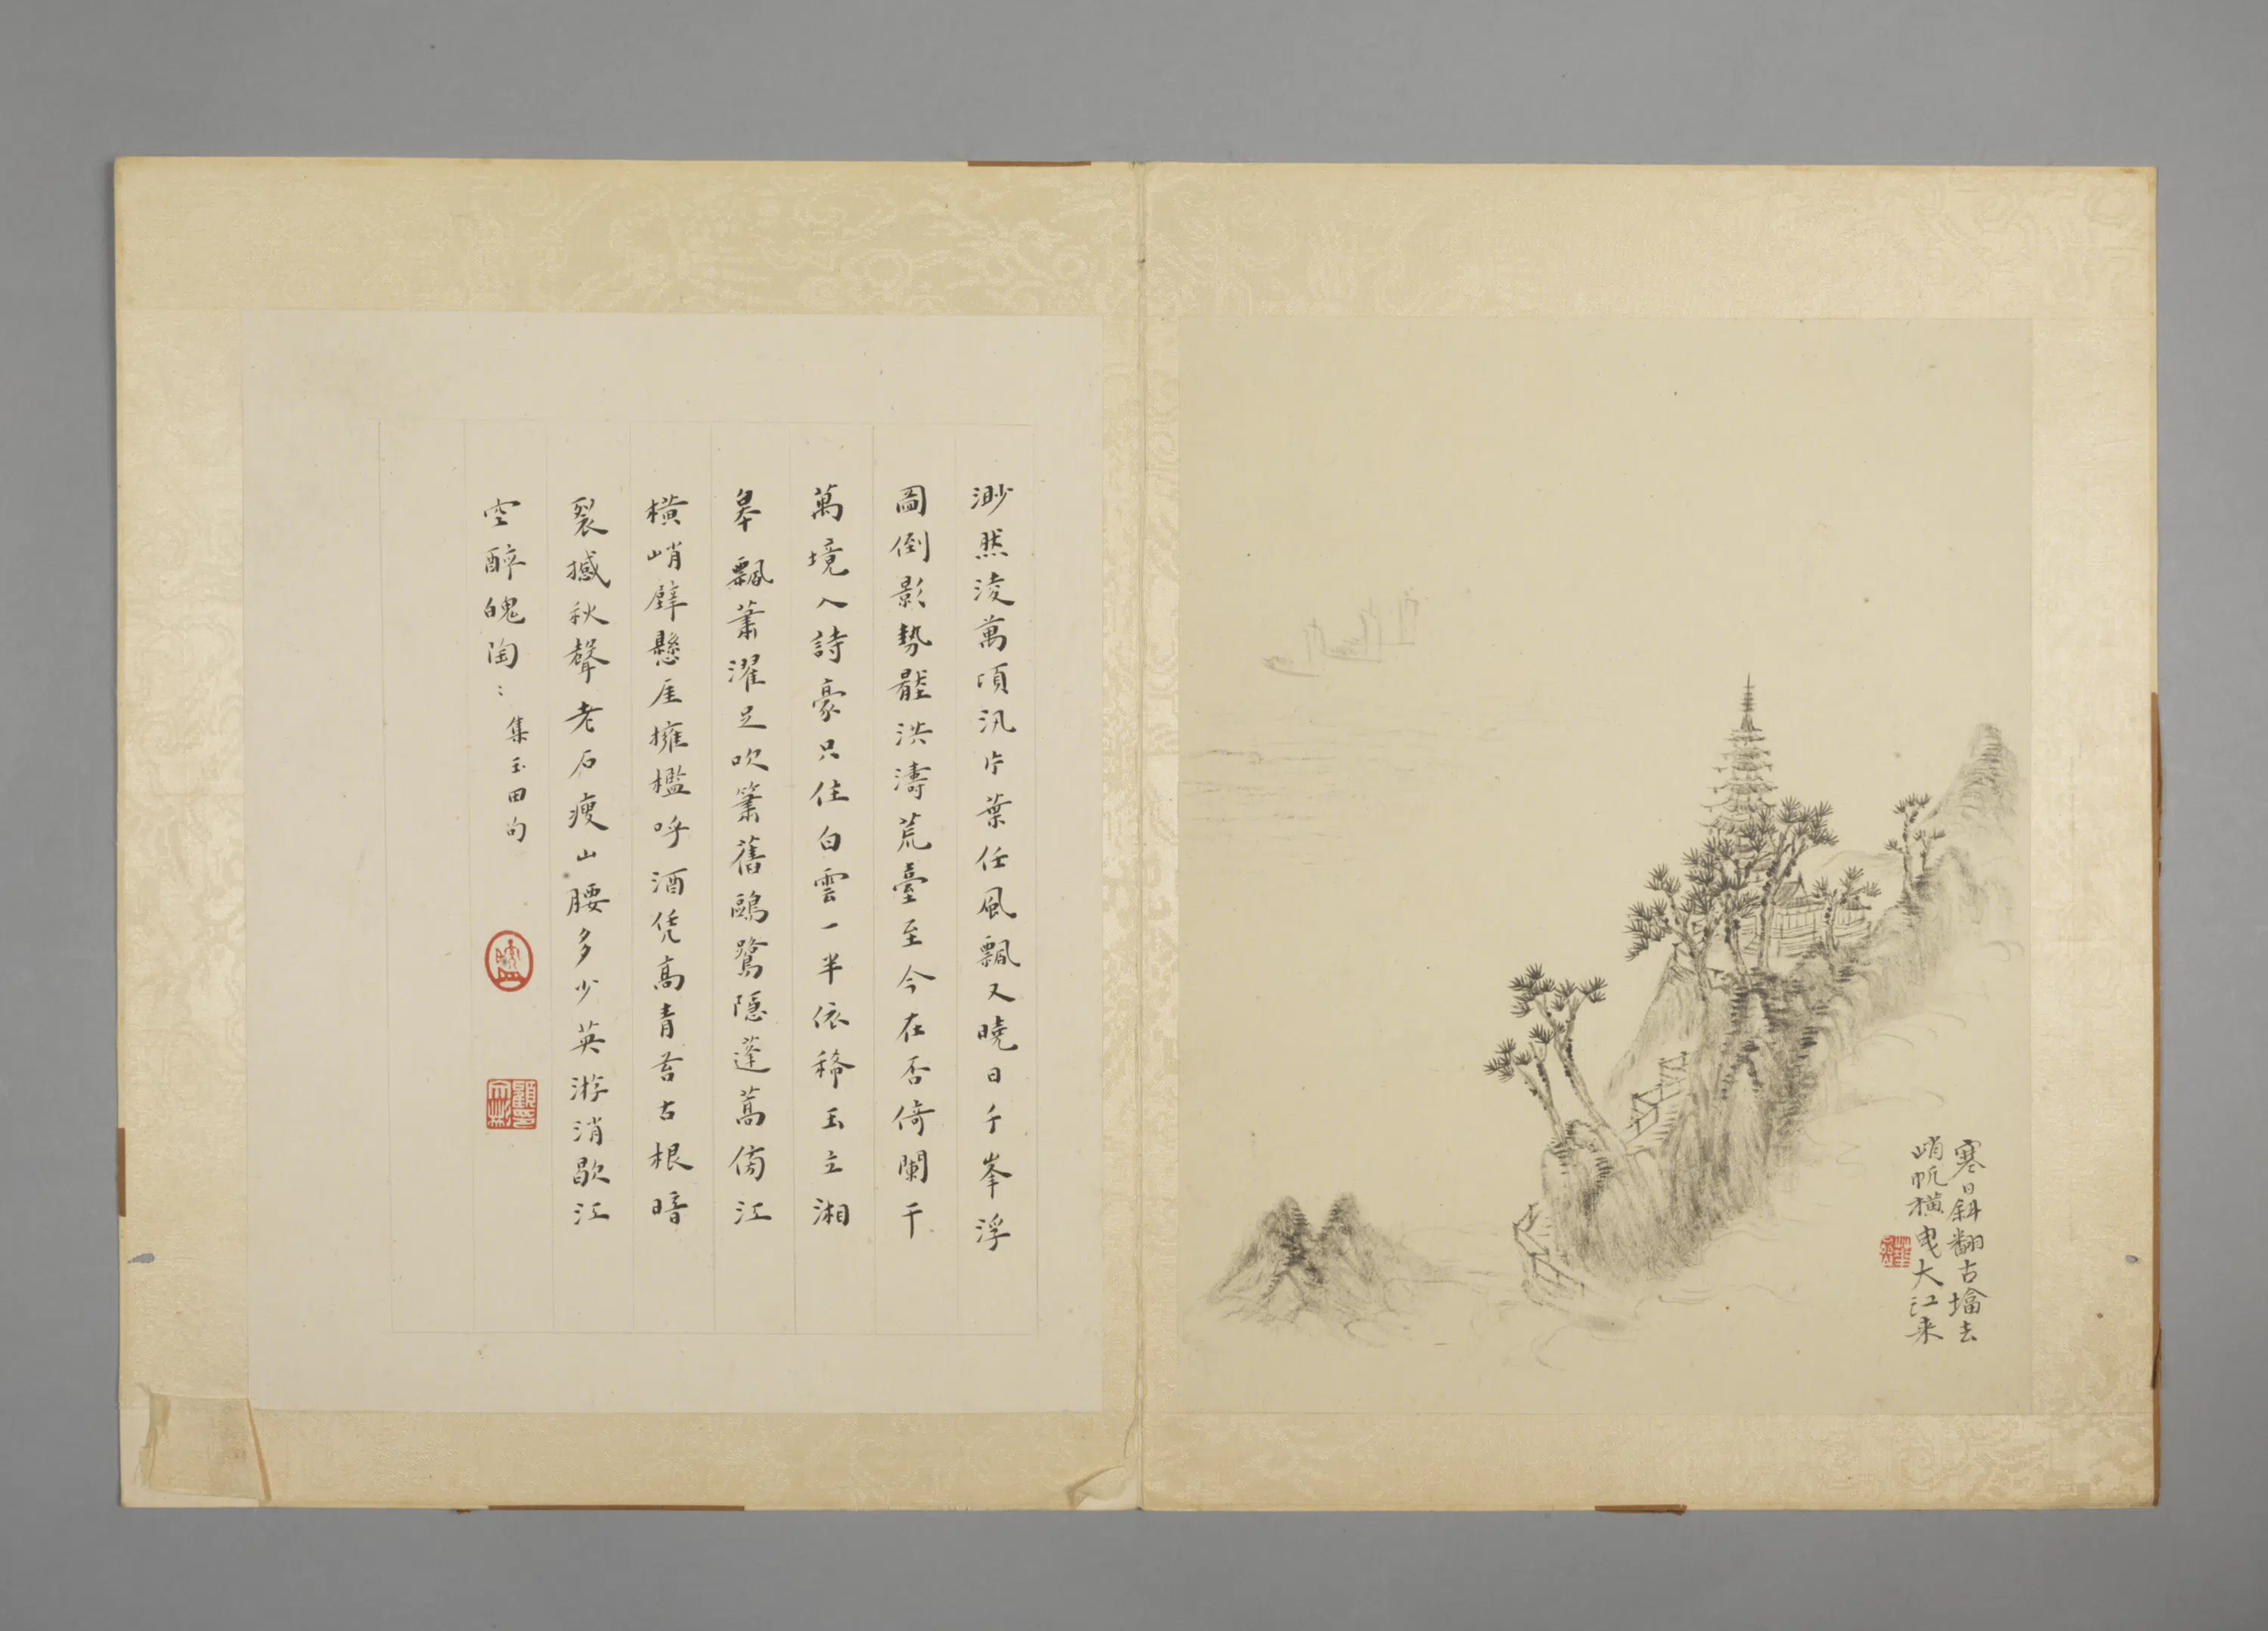 寒日斜翻古墖去
峭帆橫曳大江来
渺然淩萬頃汎片葉任風飄又曉日千峯浮
圖倒影勢壓洪濤荒臺至今在否倚闌干
萬境入詩豪只住白雲一半依稀玉立湘
皋飄蕭濯足吹簫舊鷗鷺隱蓬蒿傍江
橫峭壁懸厓擁檻呼酒凭高青苔古根暗
裂撼秋聲老石瘦山腰多少英游消歇江
空醉魄陶〻集玉田句